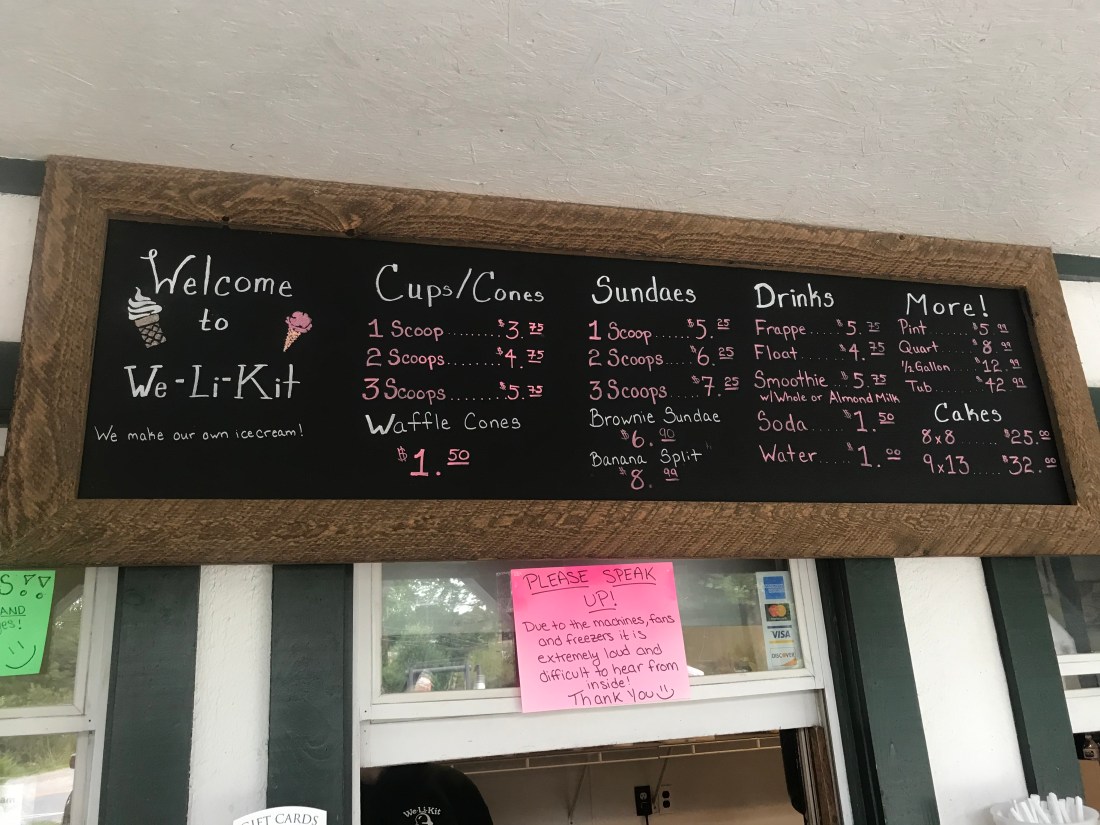 Welcome
to
We-Li-Kit
We make our own icecream!
Cups/Cones
1 Scoop.......$3.75
2 Scoops.......$4.75
3 Scoops.......$5.75
Waffle Cones
$1.50
Sundaes
1 Scoop.....$5.25
2 Scoops....$6.25
3 Scoops....$7.25
Brownie Sundae
$6.90
Banana Split
$8.99
Drinks
Frappe....$5.75
Float......$4.75
Smoothie..$5.75
w/Whole or Almond Milk
Soda......$1.50
Water.....$1.00
More!
Pint.......$5.99
Quart.....$8.99
1/2 Gallon...$12.99
Tub.......$42.99
Cakes
8x8.......$25.00
9x13.....$32.00
PLEASE SPEAK
UP!
Due to the machines, fans
and freezers it is
extremely loud and
difficult to hear from
inside!
Thank You
AND
VISA
DISCOVER
We-Li-Kit
GIFT CARDS